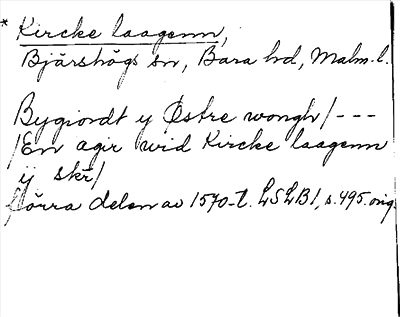 * Kircke laagenn,
Bjärshögs sn, Bara hd, Malm. l.
Bygiordt y Østre wongh/---
/En agir wid Kircke laagenn
ij skr/
Norra delen av 1570-t. LSLB1, s. 495. orig.